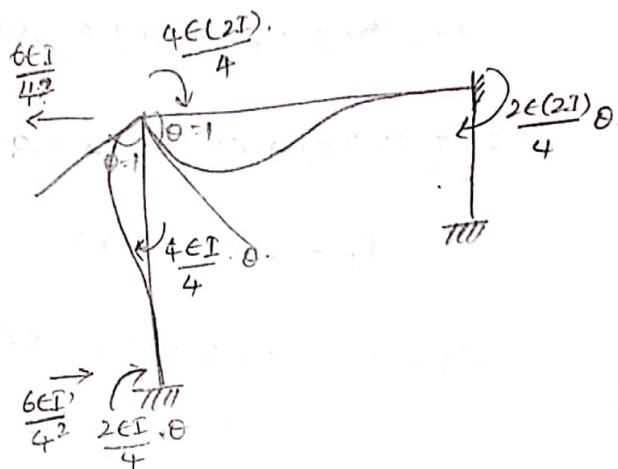 6EI/4²
4E(2I)/4
θ=1
θ=1
2E(2I)/4 θ
4EI/4 . θ.
6EI/4²
2EI/4 .θ